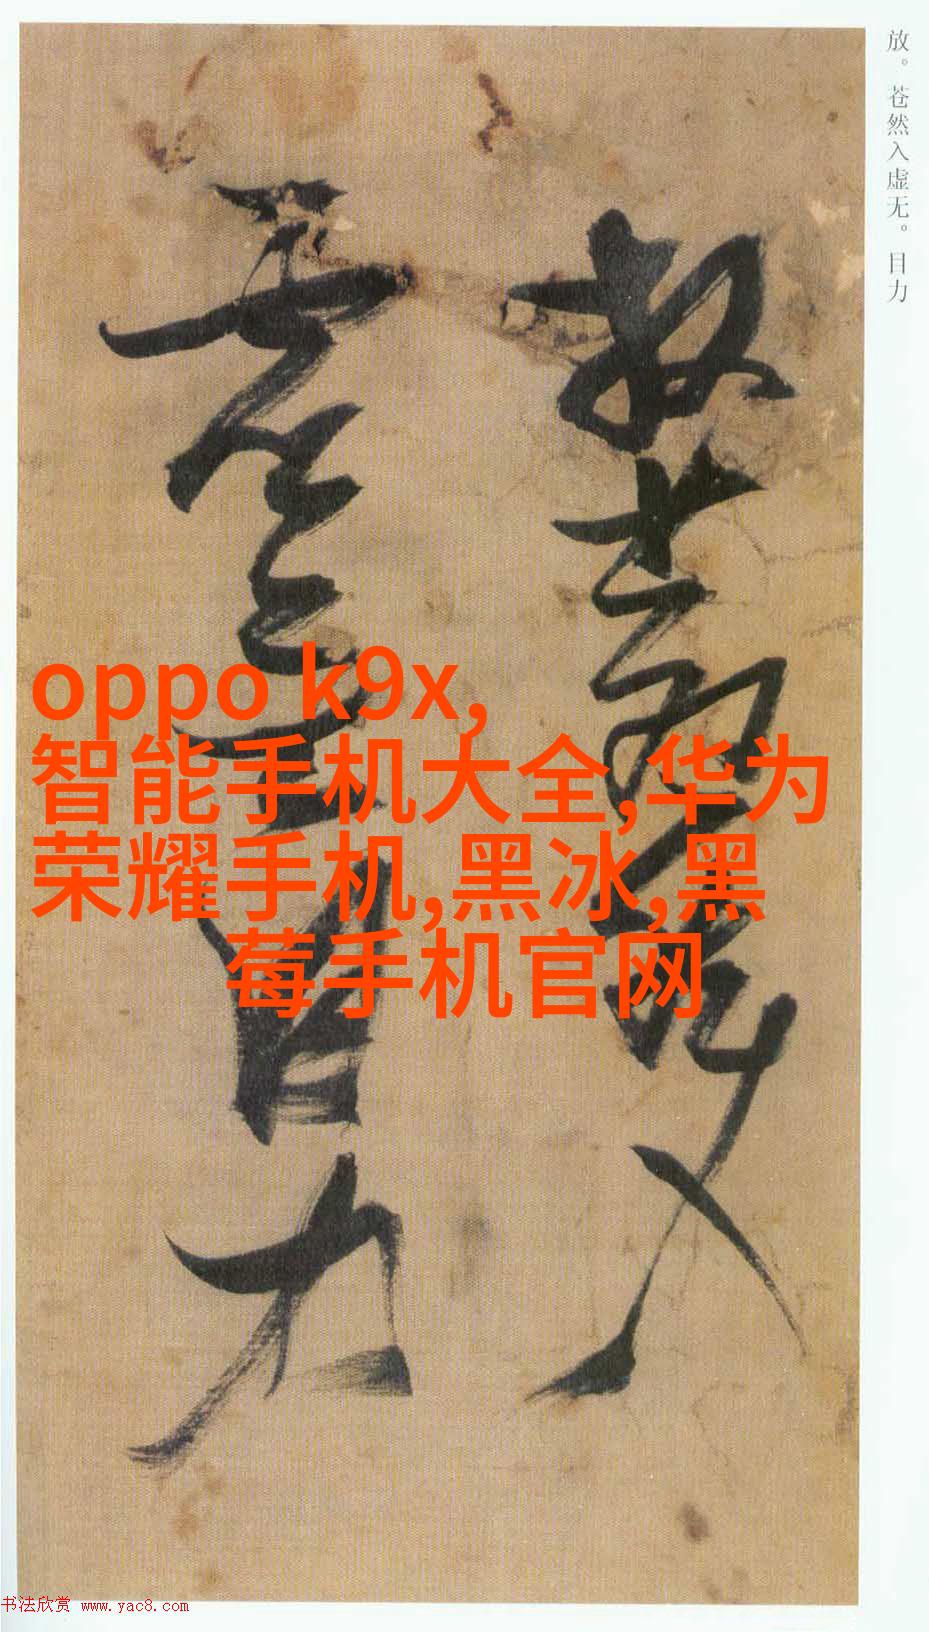 放。苍然入虚无。目力
放苍然入
虚无目力
oppo k9x,
智能手机大全,华为
荣耀手机,黑冰,黑
莓手机官网
书法欣赏 www.yac8.com